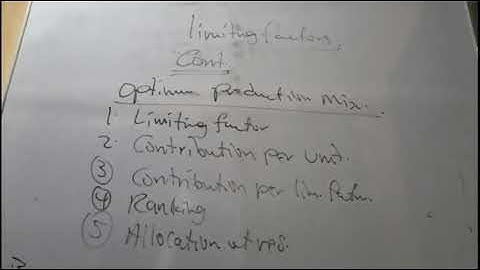 limiting factors,
Cont.
Optimum production mix.
1. Limiting factor
2. Contribution per unit.
3 Contribution per lim. factor.
4 Ranking
5 Allocation of res.